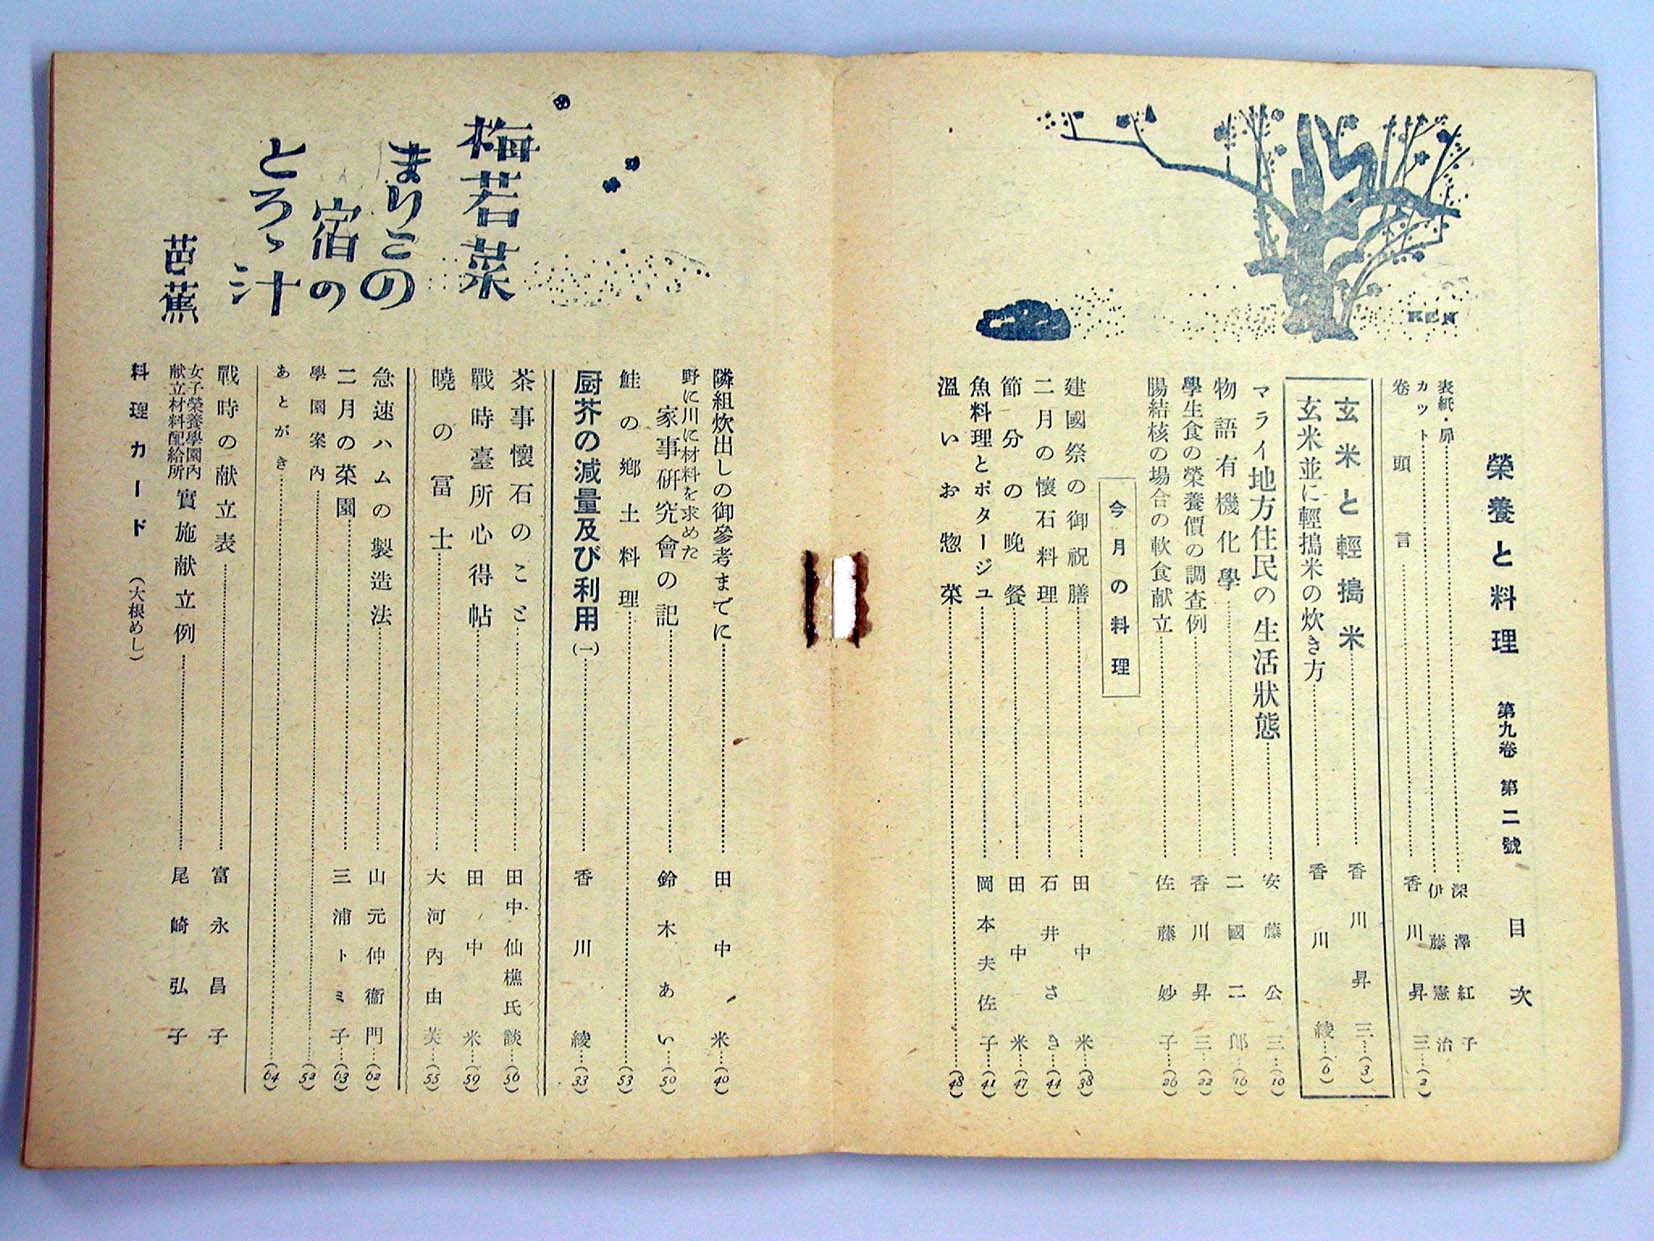 榮養と料理 第九卷 第二號 目次
表紙・扉……深澤紅子
カット……伊藤憲治
卷頭言……香川昇三…(2)
玄米と輕搗米……香川昇三…(3)
玄米並に輕搗米の炊き方……香川綾…(6)
マライ地方住民の生活狀態……安藤公三…(10)
物語有機化學……二國二郎…(16)
學生食の榮養價の調査例……香川昇三…(22)
腸結核の場合の軟食献立……佐藤妙子…(26)
今月の料理
建國祭の御祝膳……田中米…(38)
二月の懷石料理……石井さき…(44)
節分の晩餐……田中米…(47)
魚料理とポタージュ……岡本夫佐子…(41)
溫いお惣菜……(48)
KEN
梅若菜
まりこの
宿の
とろゝ汁
芭蕉
隣組炊出しの御參考までに……田中米…(40)
野に川に材料を求めた
家事研究會の記……鈴木あい…(50)
鮭の鄕土料理……(53)
厨芥の減量及び利用(一)……香川綾…(33)
茶事懷石のこと……田中仙樵氏談…(56)
戰時臺所心得帖……田中米…(59)
曉の冨士……大河內由芙…(55)
急速ハムの製造法……山元仲衞門…(62)
二月の菜園……三浦トミ子…(63)
學園案內……(52)
あとがき……(64)
戰時の献立表……富永昌子
女子榮養學園內
献立材料配給所
實施献立例……尾崎弘子
料理カード(大根めし)